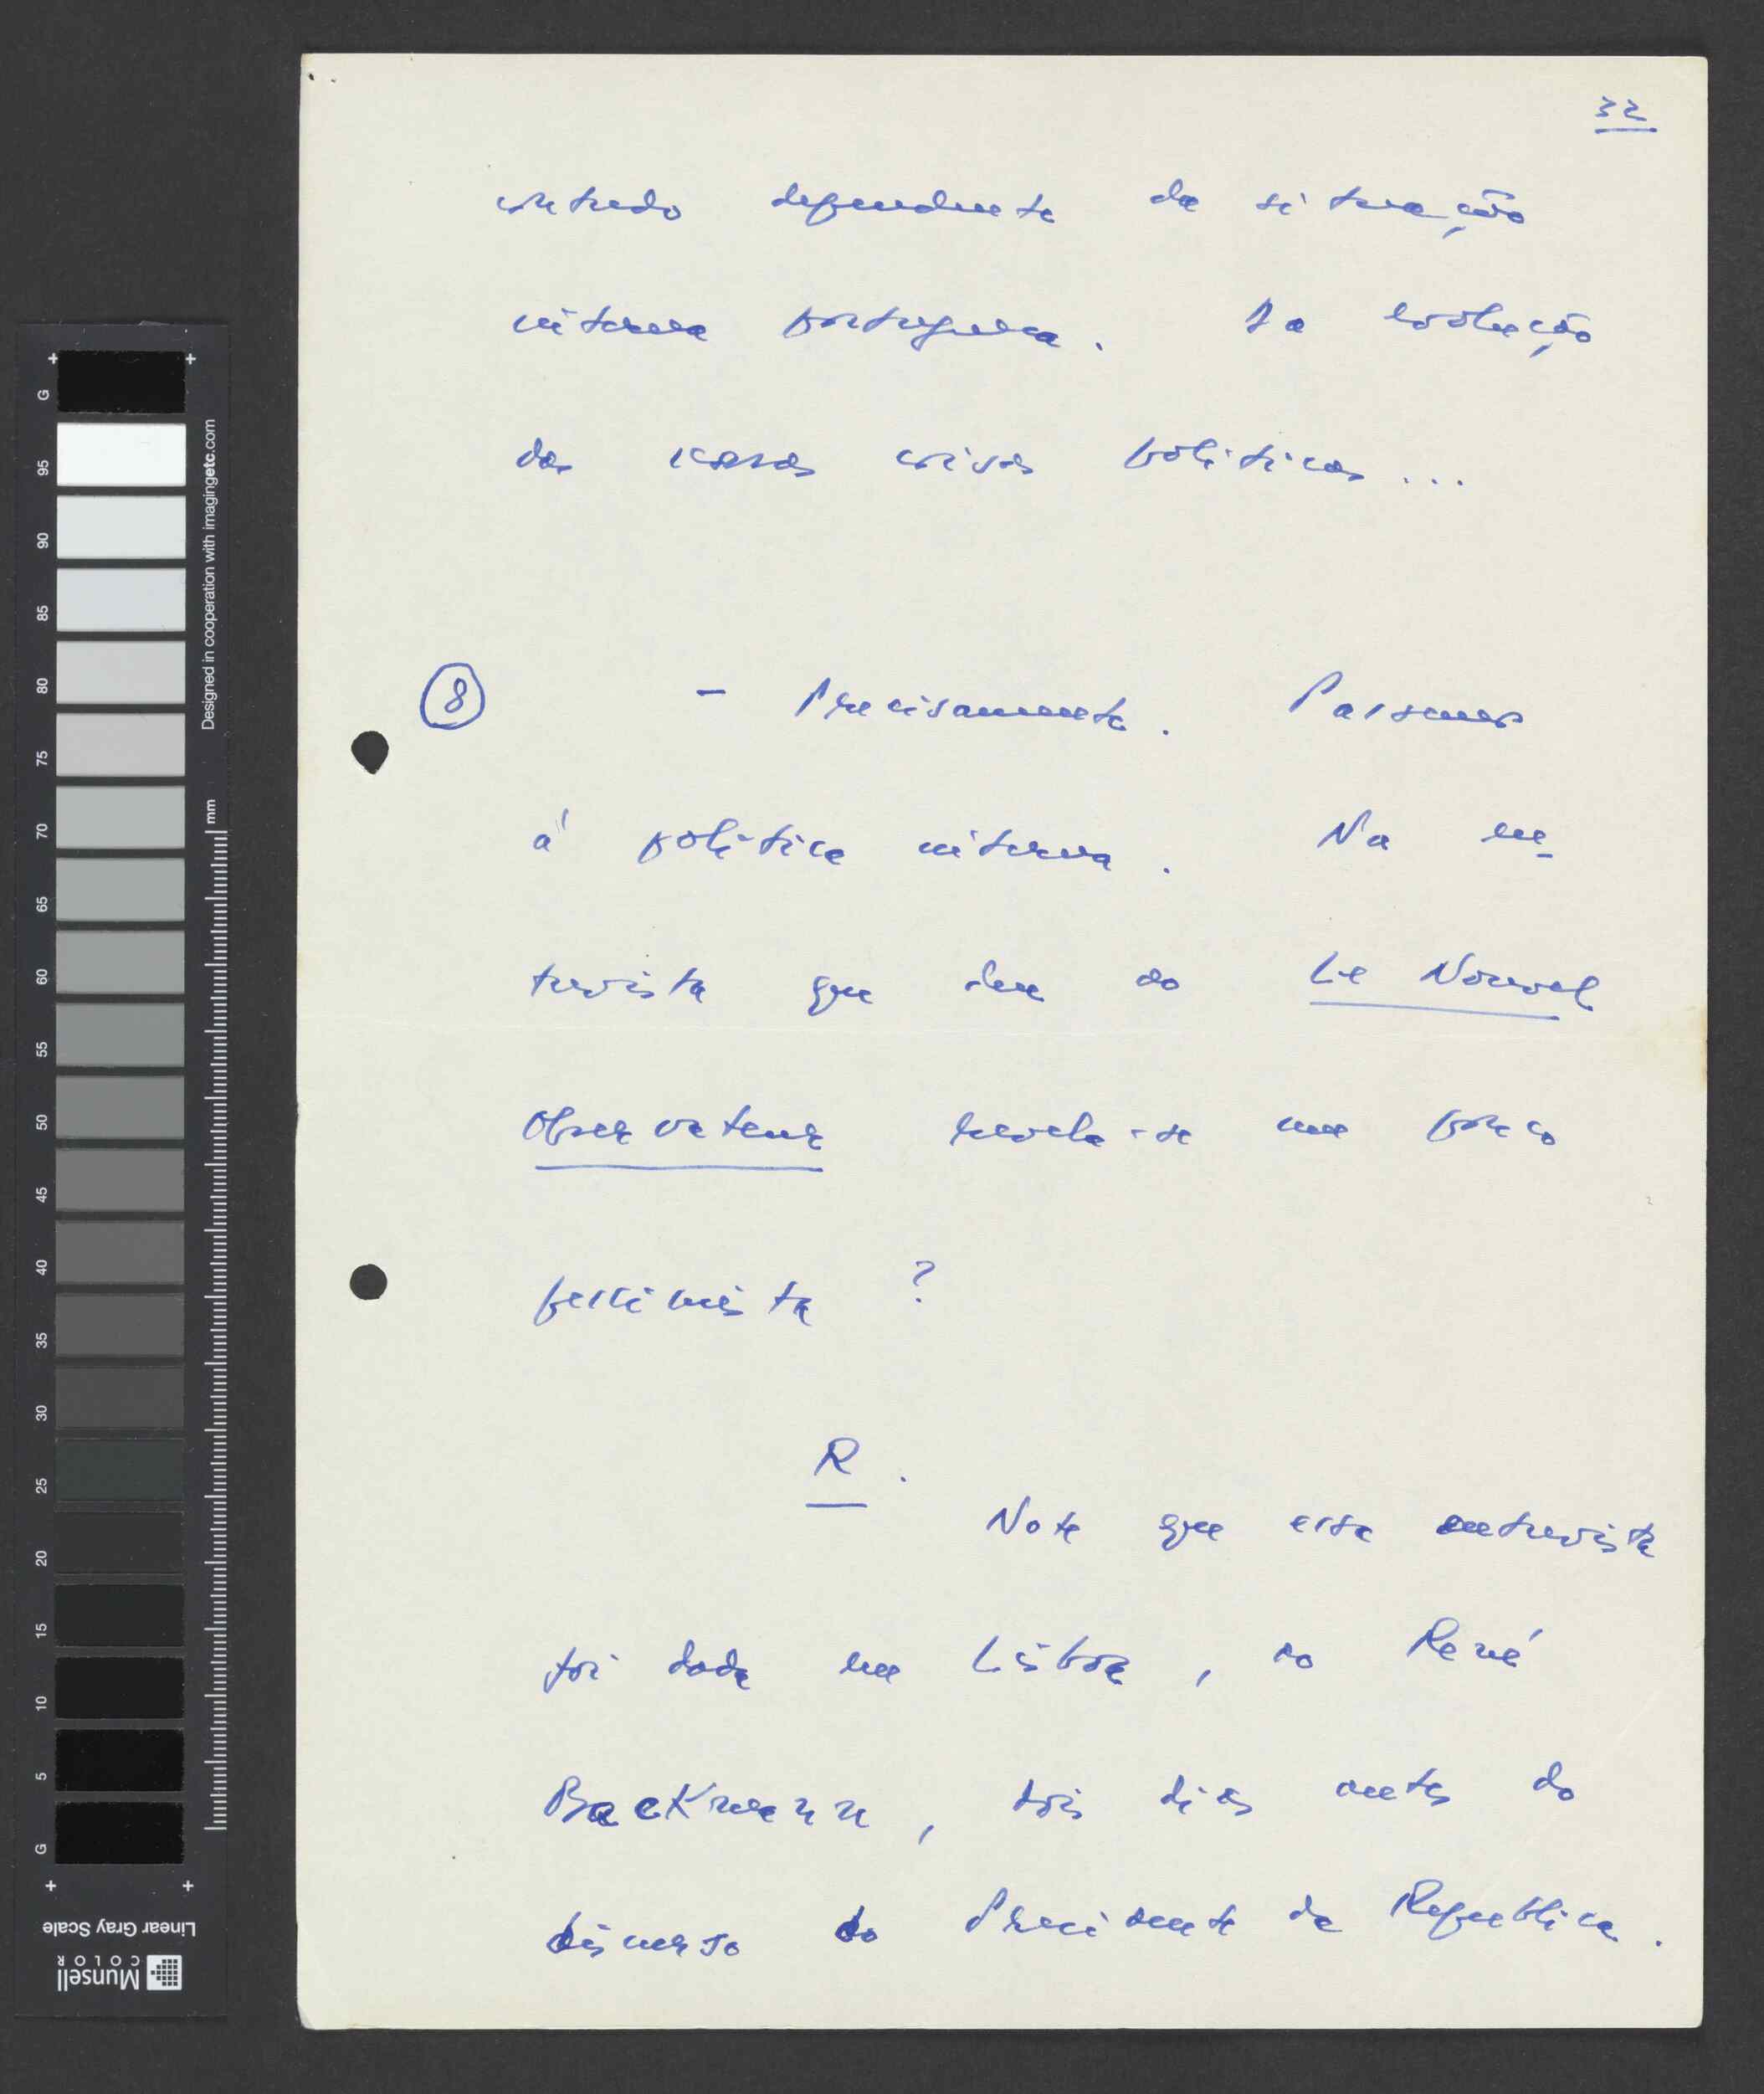 32
contudo dependente da situação
interna portuguesa. Da evolução
das nossas crises politicas...
8 - Precisamente. Passemos
á politica interna. Na en-
trevista que deu ao Le Nouvel
Observateur revela-se um pouco
pessimista ?
R.
Note que essa entrevista
foi dada em Lisboa, ao René
Backmann, dois dias antes do
discurso do Presidente da Republica.
G
95
90
85
80
75
70
65
60
55
50
45
40
35
30
25
20
15
10
5
G
Designed in cooperation with imagingetc.com
mm
Linear Gray Scale
Munsell
COLOR